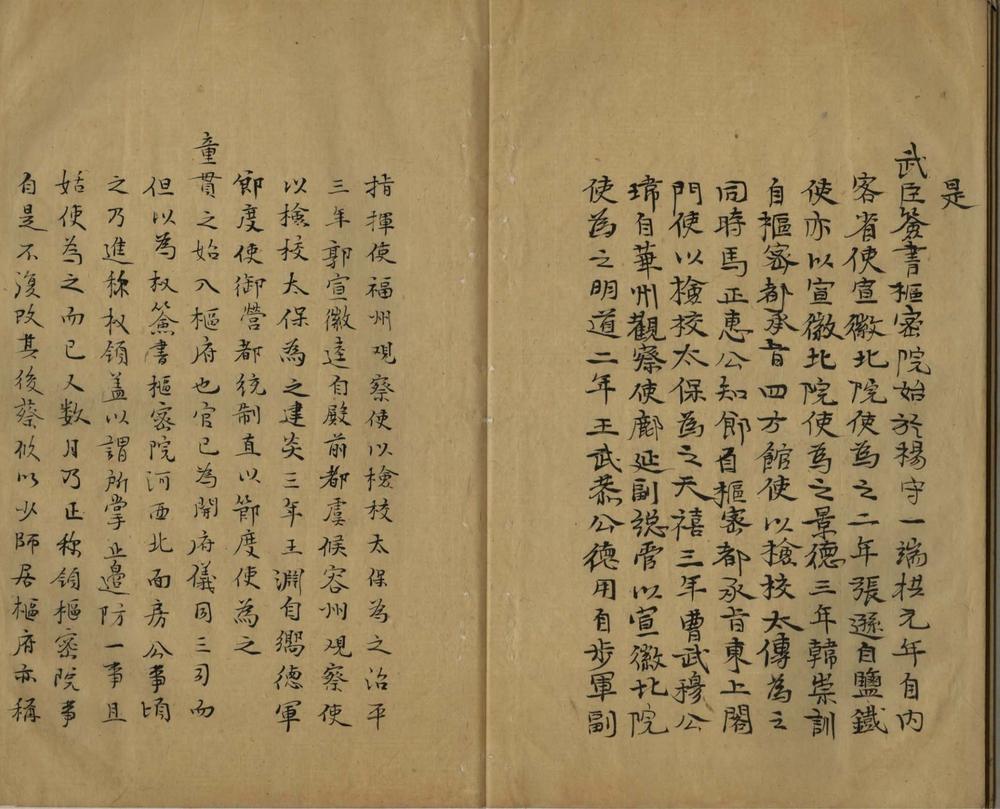 是
武臣簽書樞密院始於楊守一端拱元年自内
客省使宣徽北院使為之二年張遜自鹽鐵
使亦以宣徽北院使為之景德三年韓崇訓
自樞密都承旨四方館使以檢校太傅為之
同時馬正惠公知節自樞密都承旨東上閤
門使以檢校太保為之天禧三年曹武穆公
瑋自華州觀察使鄜延副總管以宣徽北院
使為之明道二年王武恭公德用自步軍副
指揮使福州观察使以檢校太保為之治平
三年郭宣徽逵自殿前都虞候容州观察使
以檢校太保為之建炎三年王淵自嚮德軍
節度使御營都統制直以節度使為之
童貫之始入樞府也官已為開府儀同三司而
但以為权簽書樞密院河西北面房公事頃
之乃進称权領盖以謂所掌止邊防一事且
姑使為之而已又数月乃正称領樞密院事
自是不復改其後蔡攸以少師居樞府亦稱